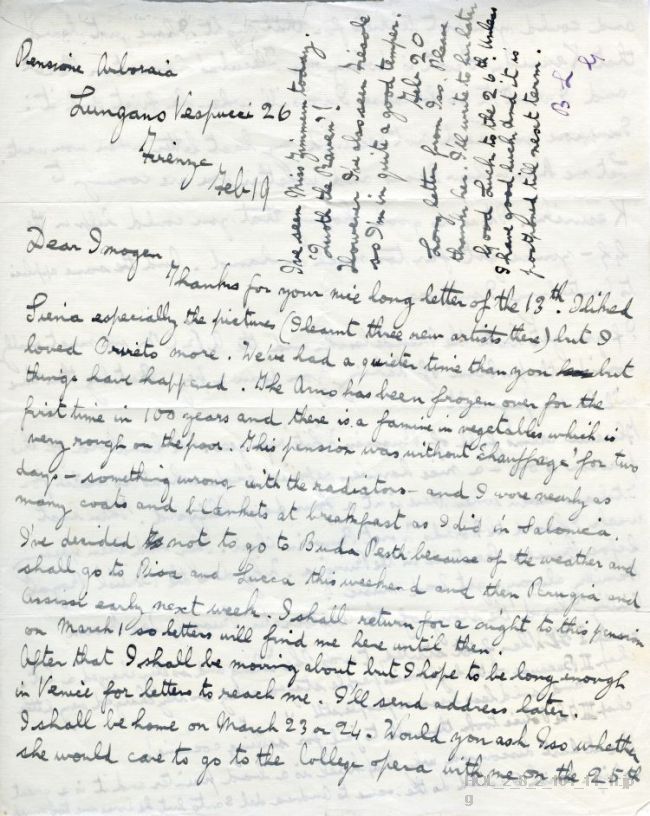 Pensione Arboraia
Lungano Vespucci 26
Firenze
Feb 19
Dear Imogen
Thanks for your nice long letter of the 13th. I liked
Siena especially the pictures (I learnt three new artists there) but I
loved Orvieto more. We've had a quieter time than you but
things have happened. The Arno has been frozen over for the
first time in 100 years and there is a famine in vegetables which is
very rough on the poor. This pension was without 'chauffage' for two
days - something wrong with the radiators - and I wore nearly as
many coats and blankets at breakfast as I did in Salonica.
I've decided not to go to Buda Pesth because of the weather and
shall go to Pisa and Lucca this weekend and then Perugia and
Assisi early next week. I shall return for a night to this pension
on March 1 so letters will find me here until then.
After that I shall be moving about but I hope to be long enough
in Venice for letters to reach me. I'll send address later.
I shall be home on March 23 or 24. Would you ask Iso whether
she would care to go to the College opera with me on the 25th
I've seen Miss Zimmern today.
'Quoth the Raven'!
However I've also seen
so I'm in quite a good temper.
Feb 20
Long letter from Iso. Please
thank her. I'll write to her later
Good luck to the 26th. Unless
I have good luck and it is
postponed till next term.
B L G